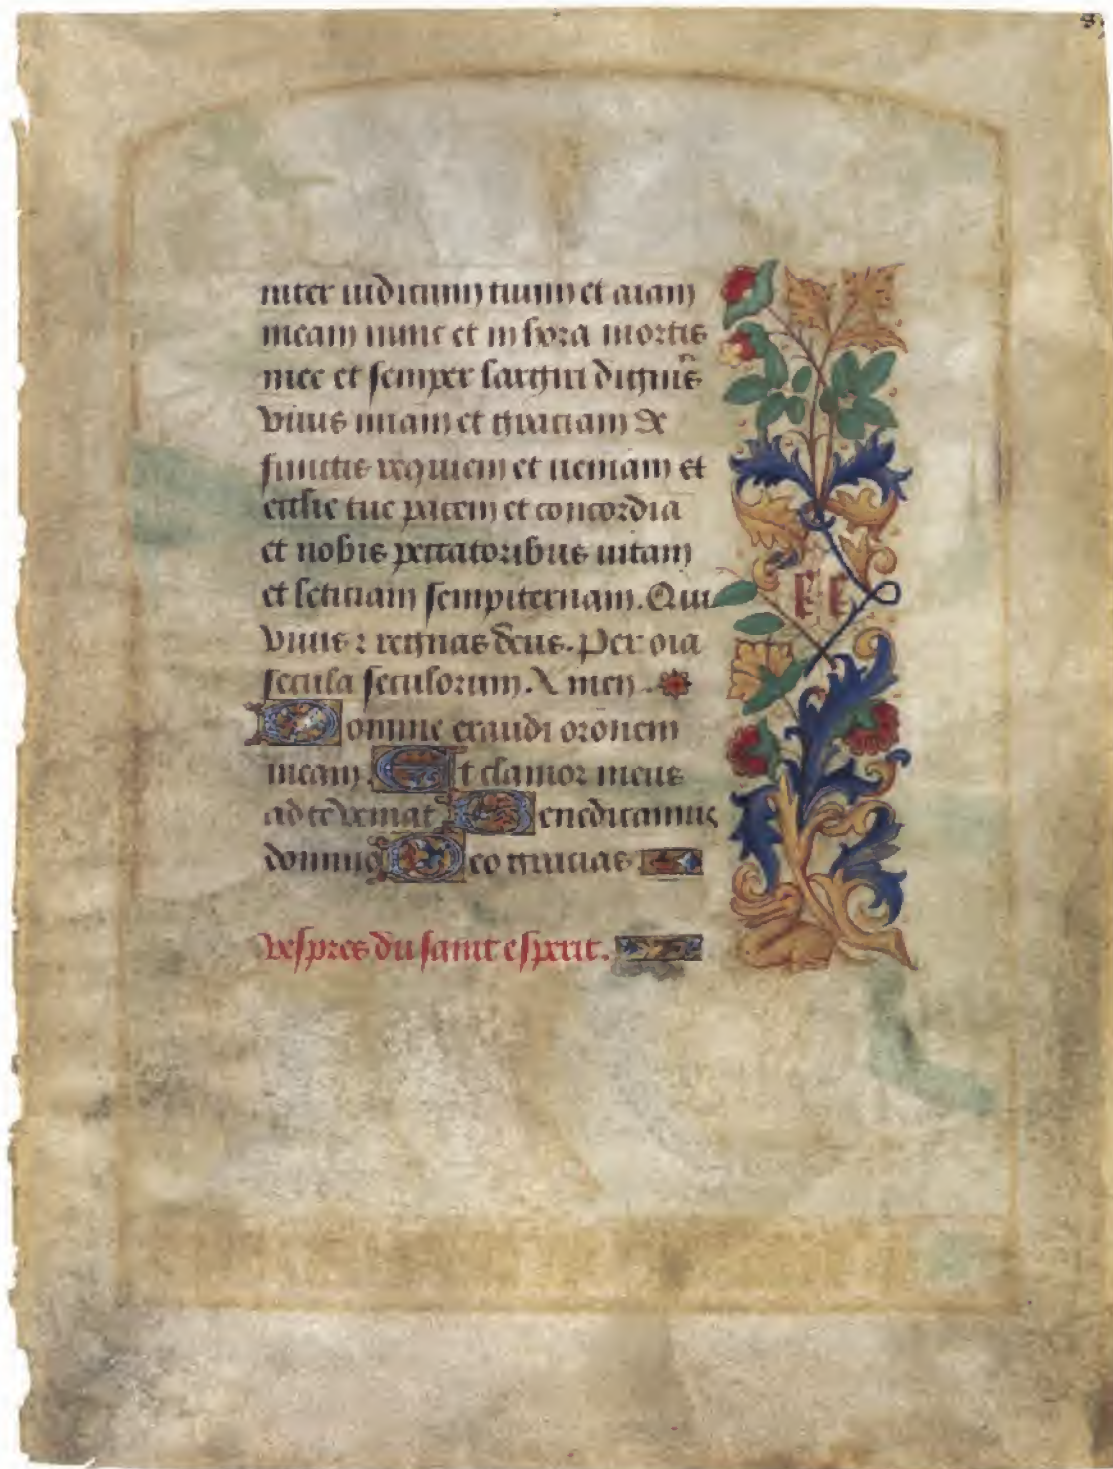 inter iudicium tuum et aiam
meam nunc et in hora mortis
mee et semper largiri digneris
viuis miam et graciam de
functis requiem et ueniam et
ecclie tue pacem et concordia
et nobis peccatoribus uitam
et leticiam sempiternam. Qui
viuis z regnas deus. Per oia
secula seculorum. Amen.
Domine exaudi oronem
meam. Et clamor meus
ad te veniat Benedicamus
domino Deo gracias
Vespres du saint esperit.
E E